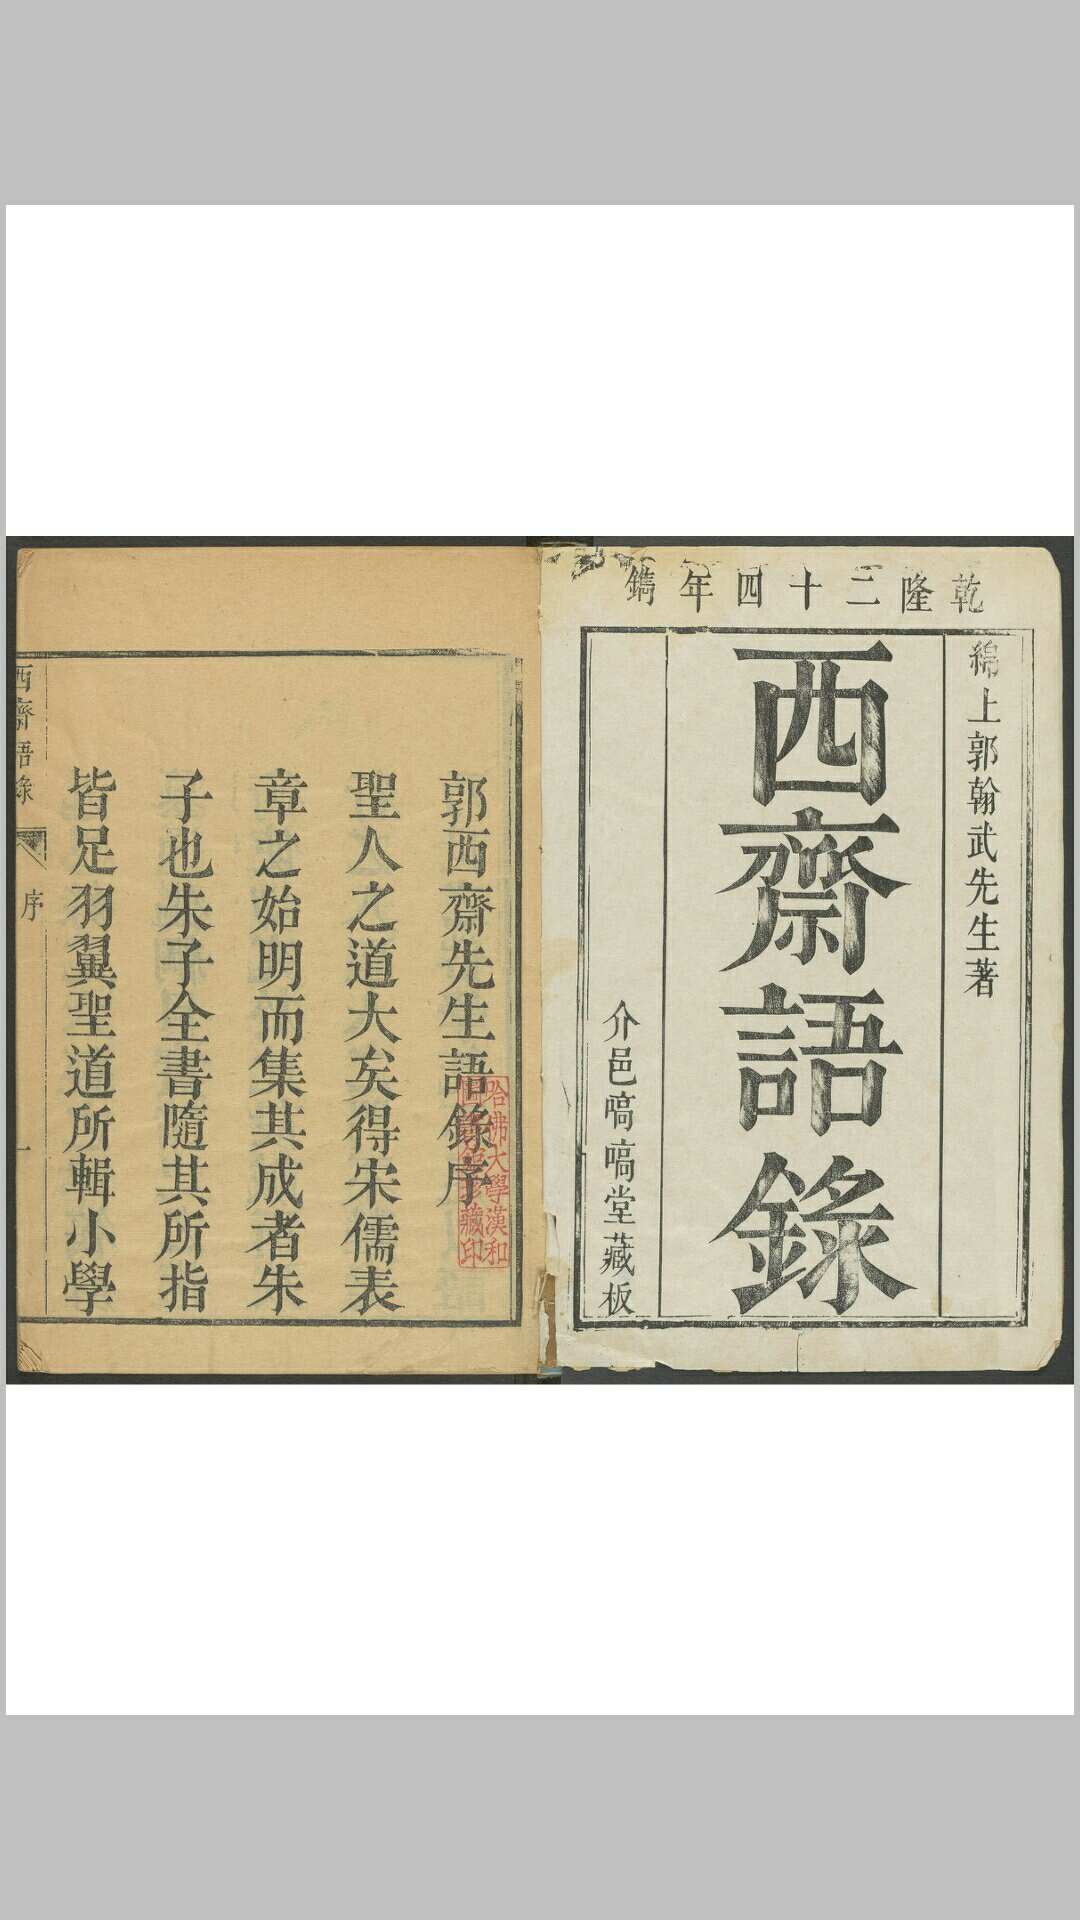 乾隆二十四年鐫
綿上郭翰武先生著
西齋語錄
介邑嗃嗃堂藏板
郭西齋先生語錄序
聖人之道大矣得宋儒表
章之始明而集其成者朱
子也朱子全書隨其所指
皆足羽翼聖道所輯小學
西齋語錄
序
一
哈佛大學漢和
圖書館珍藏印